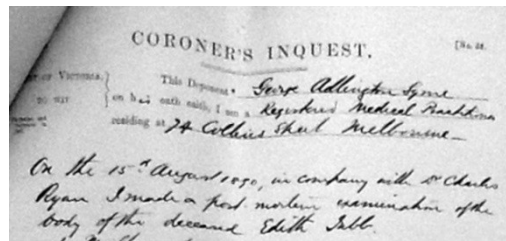 CORONER'S INQUEST.
[No. 24.
OF VICTORIA,
This Deponent George Adlington Syme
TO WIT
on his oath saith, I am a Registered Medical Practitioner
residing at 74 Collins Street Melbourne
On the 15th August 1890, in company with Dr Charles
Ryan I made a post mortem examination of the
body of the deceased Edith Tubb.